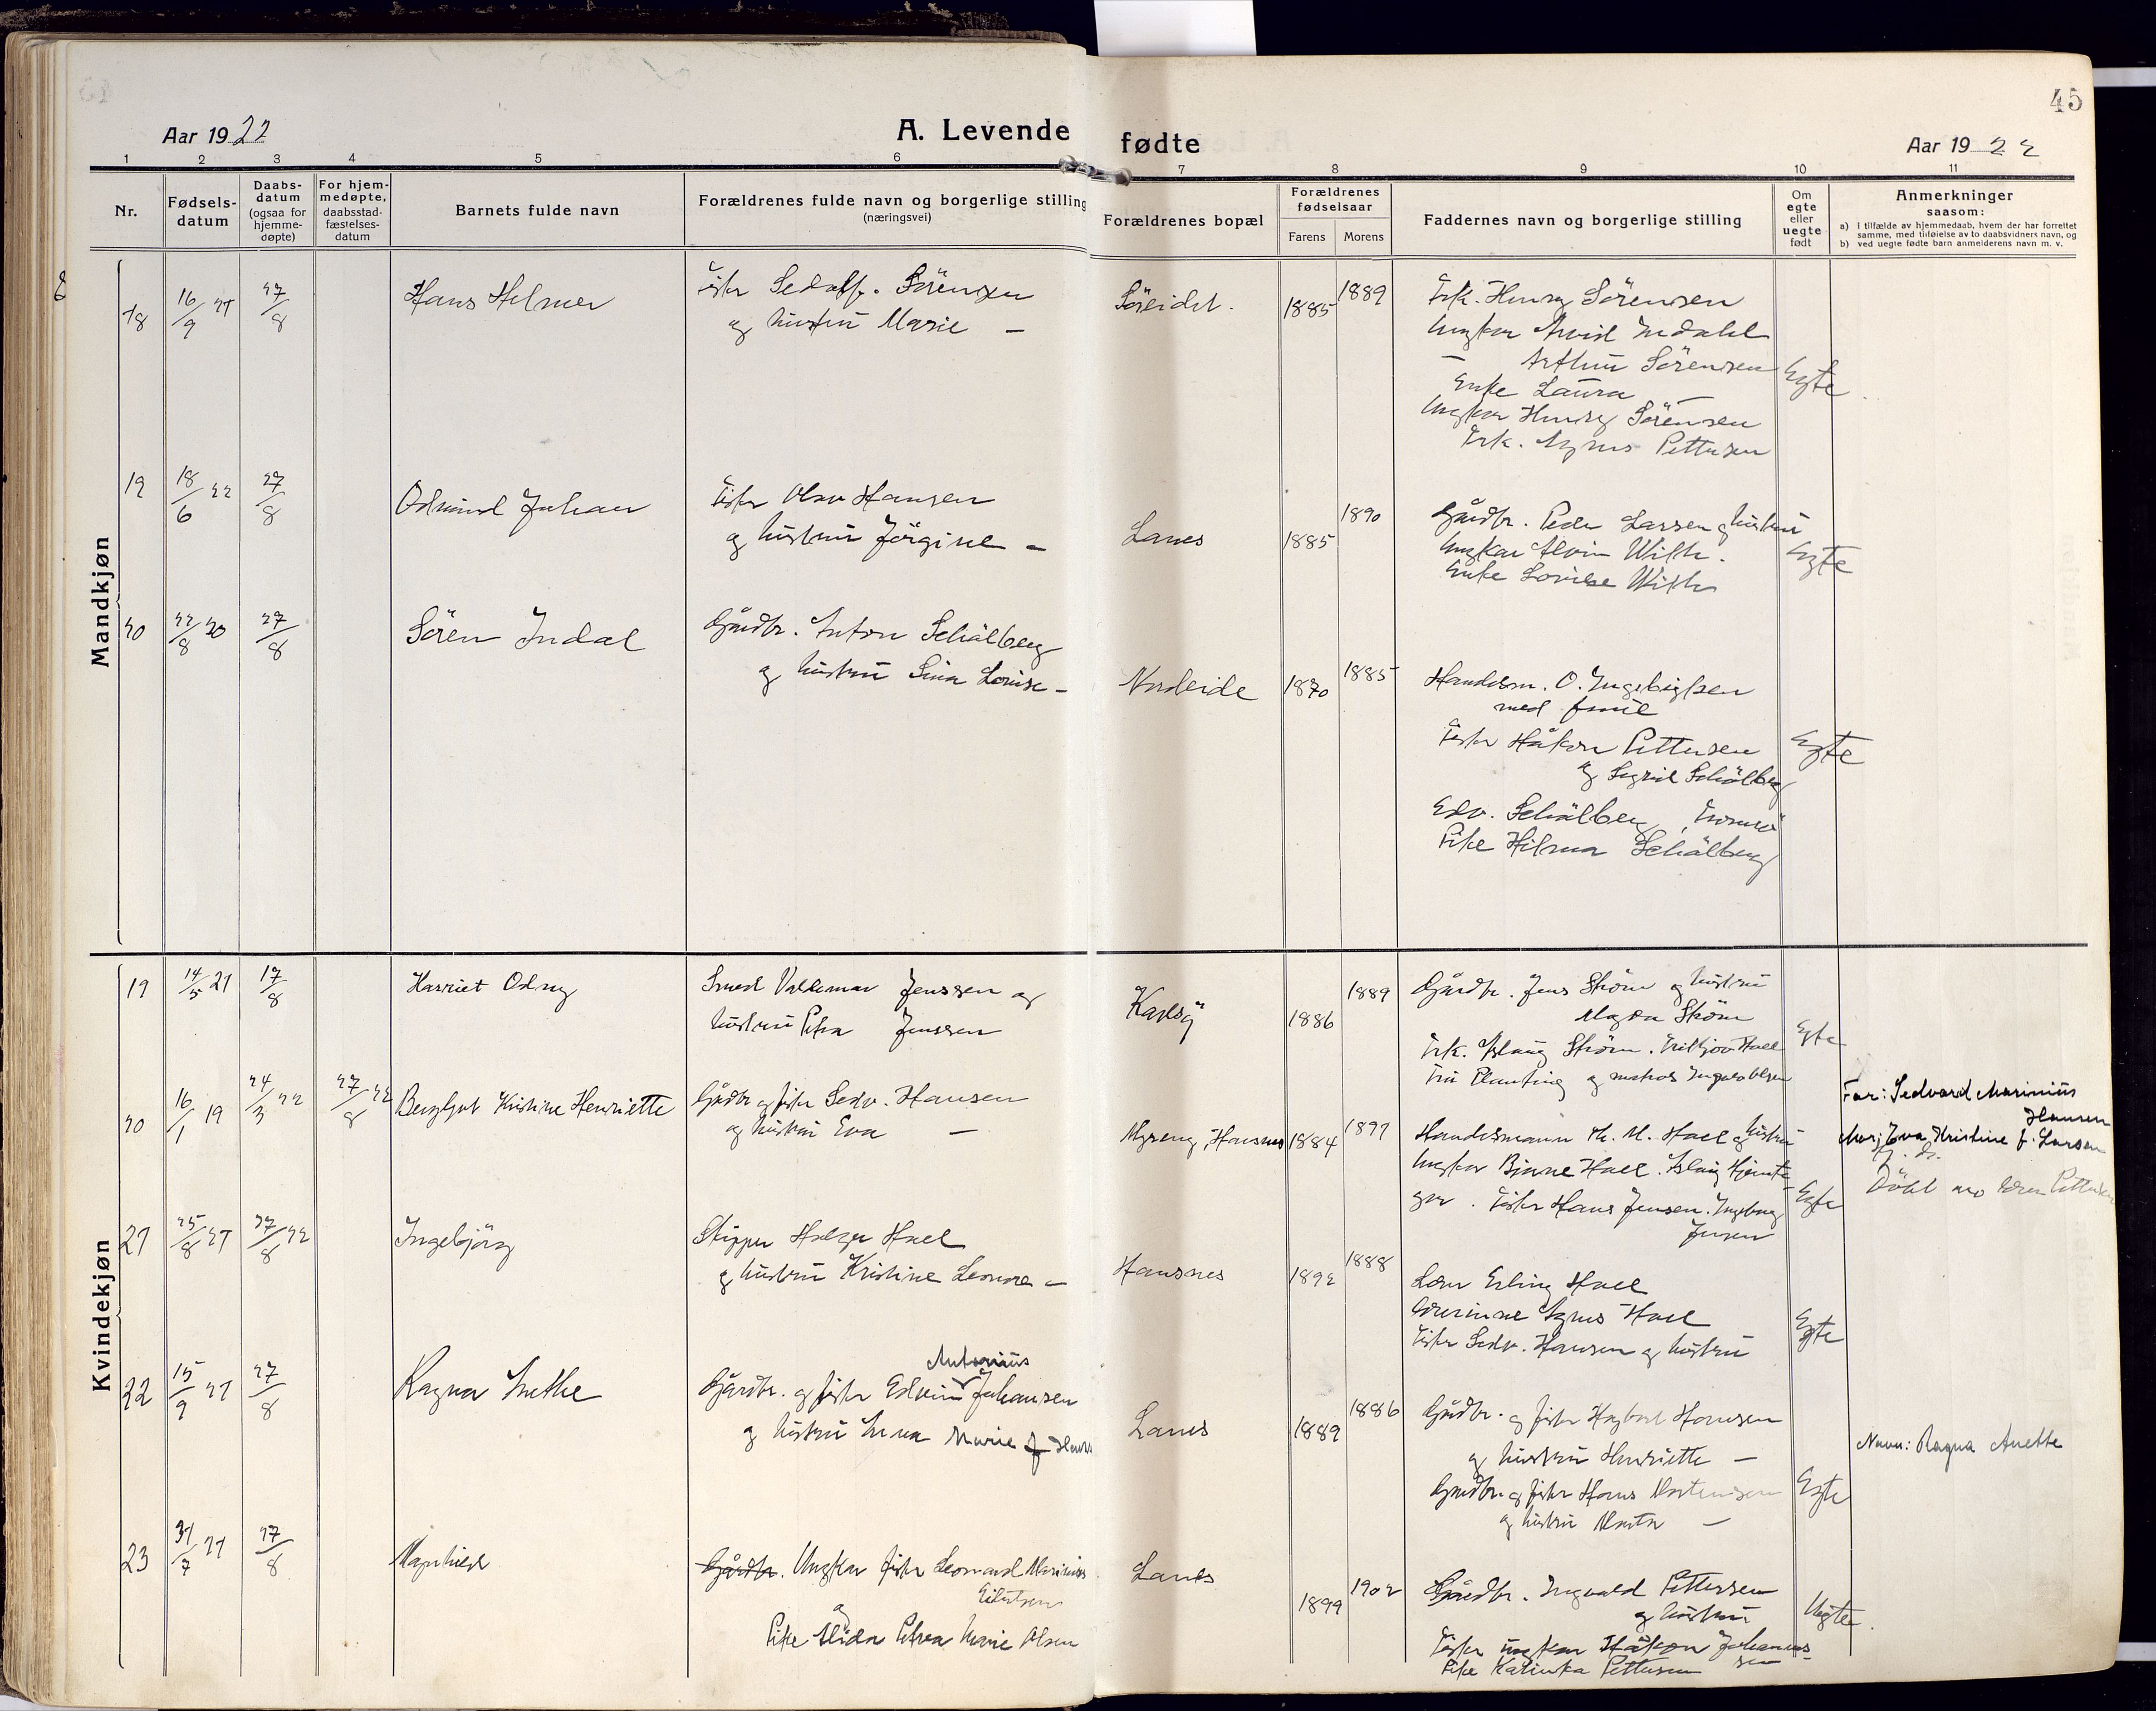 45
Aar 1922
A. Levende fødte
Aar 1922
1 2 3 4 5 6 7 8 9 10 11
Nr.
Fødsels-
datum
Daabs-
datum
(ogsaa for
hjemme-
døpte)
For hjem-
medøpte,
daabsstad-
fæstelses-
datum
Barnets fulde navn
Forældrenes fulde navn og borgerlige stilling
(næringsvei)
Forældrenes bopæl
Forældrenes
fødselsaar
Farens Morens
Faddernes navn og borgerlige stilling
Om
egte
eller
uegte
født
Anmerkninger
saasom:
a) I tilfælde av hjemmedaab, hvem der har forrettet
samme, med tilføielse av to daabsvidners navn, og
b) ved uegte fødte barn anmelderens navn m. v.
Mandkjøn
18 16/9 21 27/8 Hans Helmer
Fisker Sedolf. Sörensen
og hustru Marie —
Söreidet. 1885 1889
Frk. Henny Sörensen
Ungkar Arvid Indahl
— Arthur Sörensen
Enke Laura —
Ungkar Henry Sörensen
Frk. Agnes Pettersen
Egte
19 18/6 22 27/8 Odmund Johan
Fisker Olav Hansen
og hustru Jörgine —
Lanes 1885 1890
Gårdbr. Peder Larsen og hustru
Ungkar Alvin With.
Enke Lovise With
Egte
20 22/8 20 27/8 Sören Indal
Gårdbr. Anton Schälberg
og hustru Sina Lovise —
Nordeide 1870 1885
Handelsm. O. Ingebrigtsen
med famil
Fisker Håkon Pettersen
og Sigrid Schälberg
Edv. Schälberg, Tromsö
Pike Hilma Schälberg
Egte
Kvindekjøn
19 14/5 21 17/8 Harriet Odny
Smed Valdemar Jenssen og
hustru Petra Jenssen
Karlsöy 1886 1889
Gårdbr. Jens Ström og hustru
Magda Ström
Frk. Aslaug Ström. Fritjov Hall
Fru Planting og matros Ingvar Olsen
Egte
20 16/1 19 24/3 22 27/8 22 Bergljot Kristine Henriette
Gårdbr og fisker Sedv. Hansen
og hustru Eva —
Myreng, Hansnes 1884 1897
Handelsmann M. Hall og hustru
Ungkar Bjarne Hall. Aslaug Hjemte-
gar. Fisker Hans Jensen. Ingeborg
Jensen
Egte
Far: Sedvard Marinius
Hansen
Mor: Eva Kristine f. Larsen
Döbt av Sören Pettersen
21 25/8 21 27/8 22 Ingebjörg
Skipper Holger Hall
og hustru Kristine Leonore —
Hansnes 1892 1888
Lærer Erling Hall
Lærerinne Agnes Hall
Fisker Sedv. Hansen og hustru
Egte
22 15/9 21 27/8 Ragna Anethe
Antonius
Gårdbr. og fisker Edvin Johansen
og hustru Anna Marie f. Hans
Lanes 1889 1886
Gårdbr. og fisker Hagbart Hansen
og hustru Henriette —
Gårdbr. og fisker Hans Mortensen
og hustru Marta —
Egte
Navn: Ragna Anette
23 31/7 21 27/8 Magnhild
Gårdbr. Ungkar fisker Leonard Marinius
Eilertsen
og
Pike Alida Petrea Marie Olsen
Lanes 1899 1902
Gårdbr. Ingvald Pettersen
og hustru
Fisker ungkar Håkon Johannes-
sen
Pike Katinka Pettersen
Uegte.